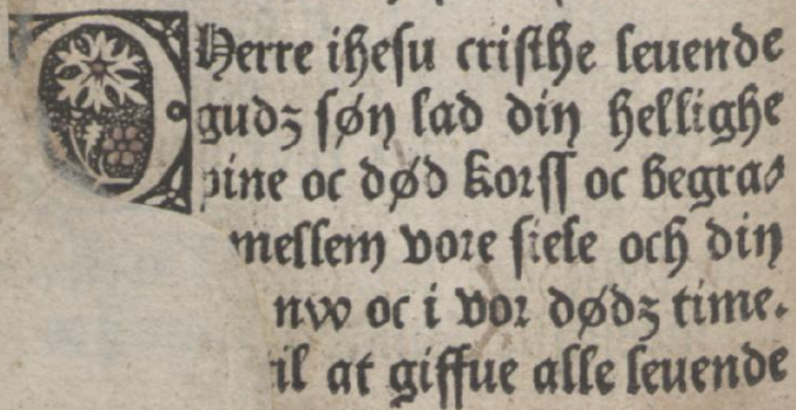 O Herre ihesu cristhe leuende
gudz søn lad din hellighe
pine oc død korss oc begra-
mellem vore siele och din
nw oc i vor dødz time.
til at giffue alle leuende